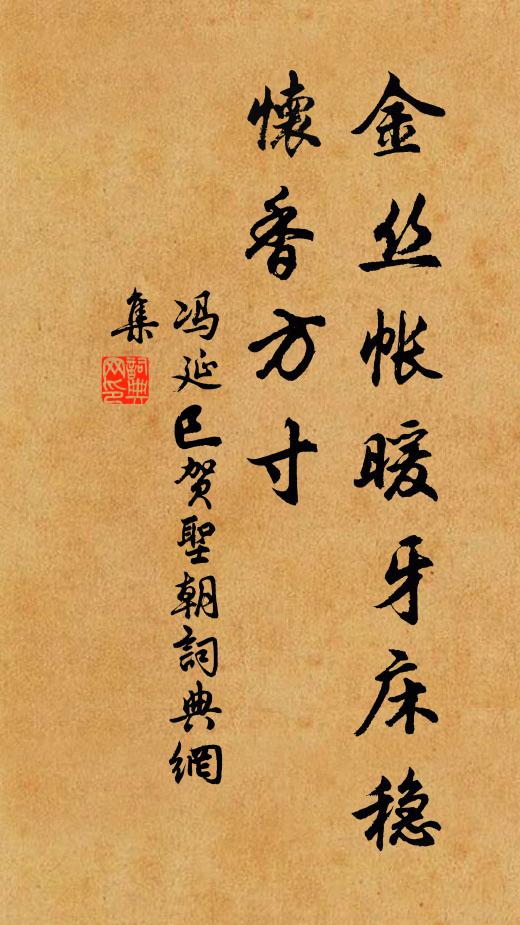 金丝帐暖牙床稳
懷香方寸
冯延巳贺聖朝詞典網
集
詞典
网印